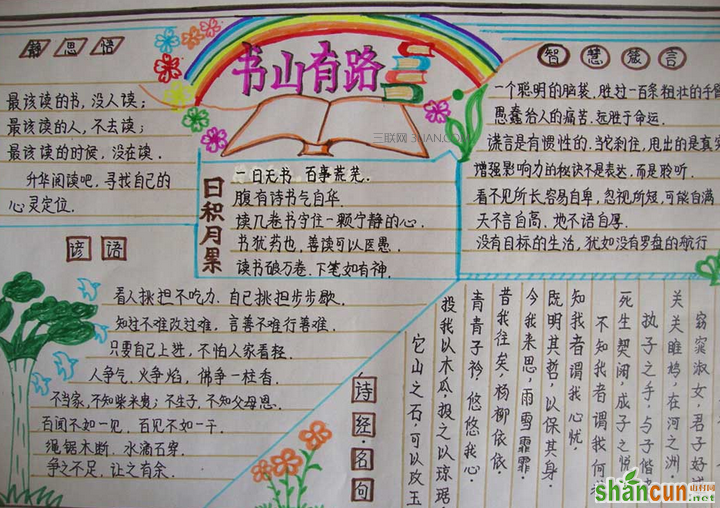 静思语
最该读的书,没人读;
最该读的人,不去读;
最该读的时候,没在读.
升华阅读吧,寻找自己的
心灵定位.
书山有路
三联网 3LIAN.COM
智慧箴言
一个聪明的脑袋,胜过一百条粗壮的手臂
愚蠢给人的痛苦,远胜于命运.
谎言是有惯性的.当轮刹住,甩出的是真实
增强影响力的秘诀不是表达,而是聆听.
看不见所长,容易自卑,忽视所短,可能自满
天不言自高、地不语自厚.
没有目标的生活,犹如没有罗盘的航行
日积月累
一日无书 百事荒芜.
腹有诗书气自华.
读几卷书守住一颗宁静的心.
书犹药也,善读可以医愚.
读书破万卷、下笔如有神.
谚语
看人挑担不吃力,自己挑担步步歇.
知过不难改过难,言善不难行善难.
只要自己上进,不怕人家看轻.
人争气,火争焰,佛争一柱香.
不当家,不知柴米贵;不生子,不知父母恩.
百闻不如一见,百见不如一干.
绳锯木断,水滴石穿.
争之不足,让之有余.
诗经名句
窈窕淑女,君子好
关关雎鸠,在河之洲
执子之手,与子偕
死生契阔,成子之悦
不知我者谓我何
知我者谓我心忧,
既明其哲,以保其身.
今我来思,雨雪霏霏
昔我往矣,杨柳依依.
青青子衿,悠悠我心.
投我以木瓜,报之以琼琚.
它山之石,可以攻玉
shancun
山村网
.net